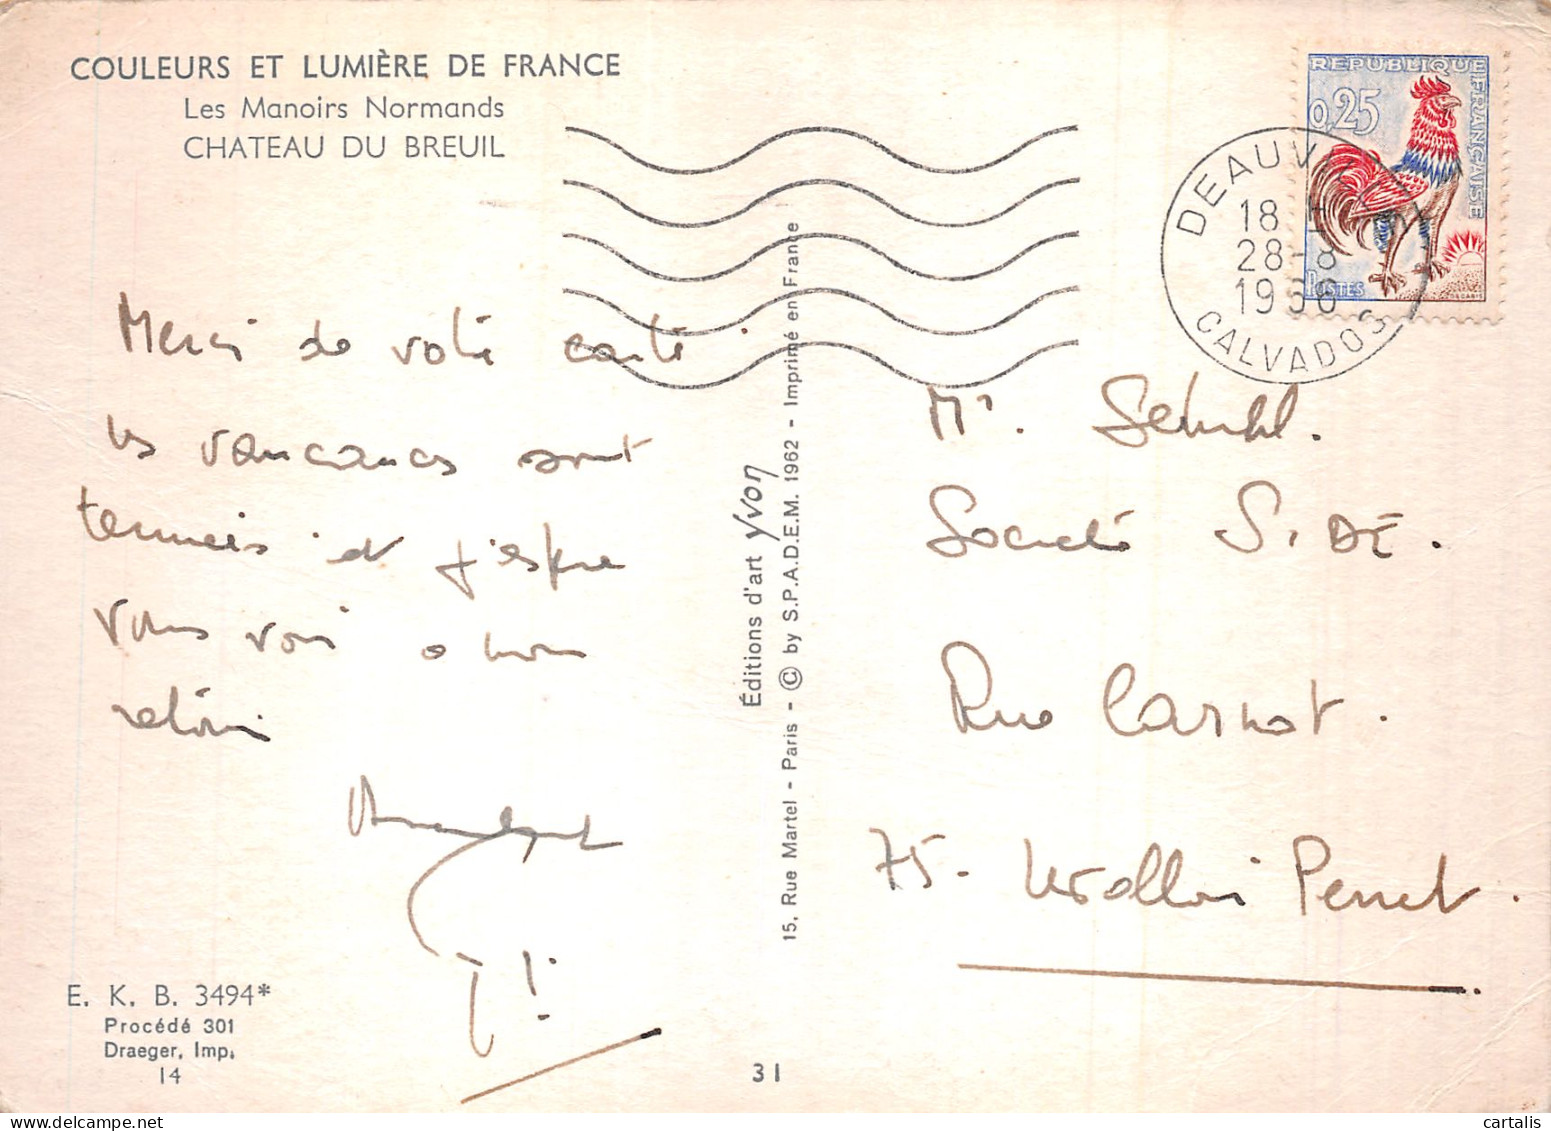 COULEURS ET LUMIÈRE DE FRANCE
Les Manoirs Normands
CHATEAU DU BREUIL
REPUBLIQUE FRANÇAISE
0,25
POSTES
DECARIS
DEAUV
18 H
28-8
1966
CALVADOS
Merci de votre carte
les vancances sont
terminées et j'espère
vous voir à mon
retour
Mr.
Société S.IDE.
Rue Carnot.
75. Levallois Perret.
Éditions d'art yvon
15, Rue Martel - Paris - © by S.P.A.D.E.M. 1962 - Imprimé en France
E. K. B. 3494*
Procédé 301
Draeger, Imp.
14
31
cartalis